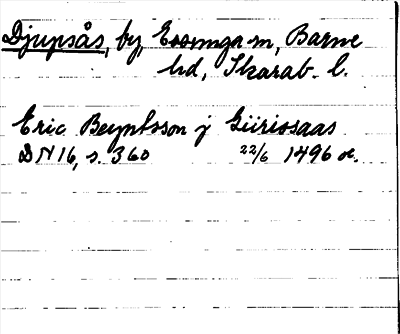 Djupsås, by, Essunga sn, Barne
hd, Skarab. l.
Eric Beyntsson j Giiriosaas
DN 16, s. 360 22/6 1496 or.